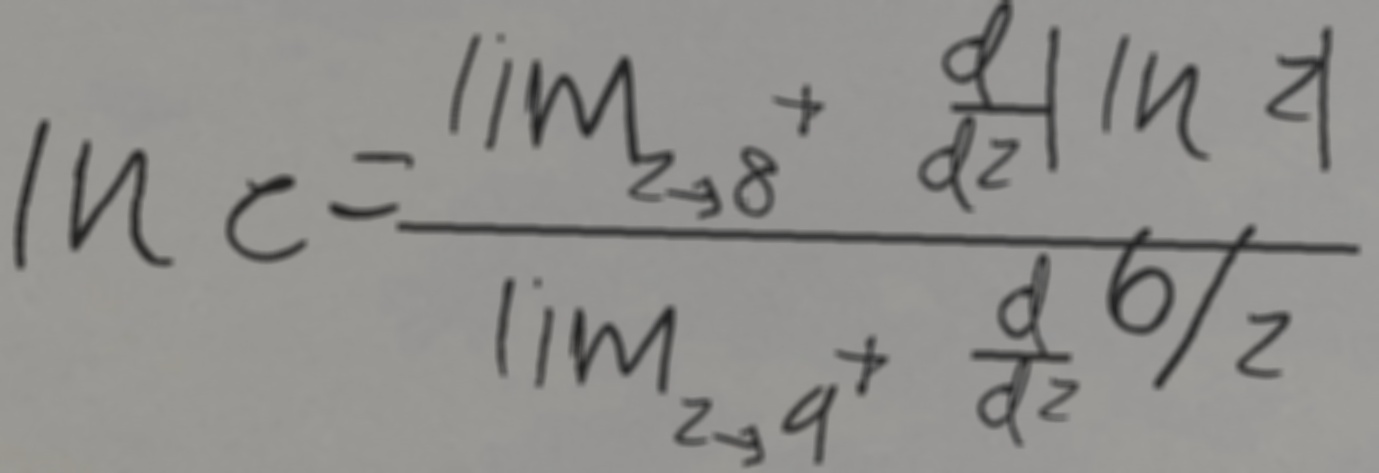 ln c = \frac{\lim_{z \to 8^+} \frac{d}{dz} |\ln z|}{\lim_{z \to 9^+} \frac{d}{dz} 6/z}